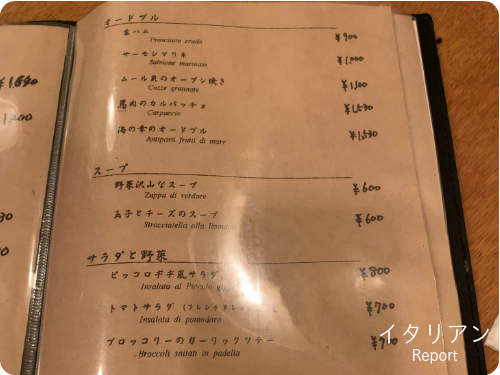 オードブル
生ハム ¥900
Prosciutto crudo
サーモンマリネ ¥1,000
Salmone marinato
ムール貝のオーブン焼き ¥1,100
Cozze gratinate
馬肉のカルパッチョ ¥1,530
Carpaccio
海の幸のオードブル ¥1,530
Antipasti frutti di mare
スープ
野菜沢山なスープ ¥600
Zuppa di verdure
玉子とチーズのスープ ¥600
Stracciatella alla Romana
サラダと野菜
ピッコロヂヂ風サラダ ¥800
Insalata al Piccolo
トマトサラダ ¥700
Insalata di pomodoro
ブロッコリーのガーリックソテー
Broccoli saltati in padella
イタリアン
Report